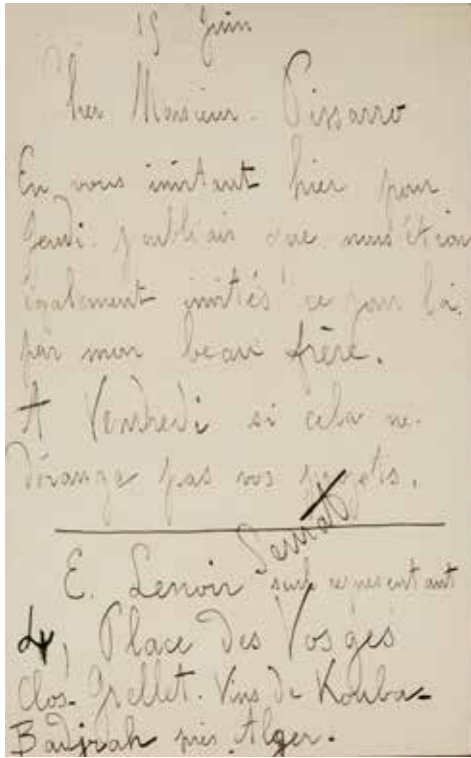 15 Juin
Cher Monsieur. Pissarro
En vous invitant hier pour
Jeudi j'oubliais que nous étions
également invités ce jour là.
par mon beau frère.
A Vendredi si cela ne.
dérange pas vos projets.
Seurat
E. Lenoir seul representant
4, Place des Vosges
Clos-Grellet. Vins de Kouba-
Badjrah près Alger.